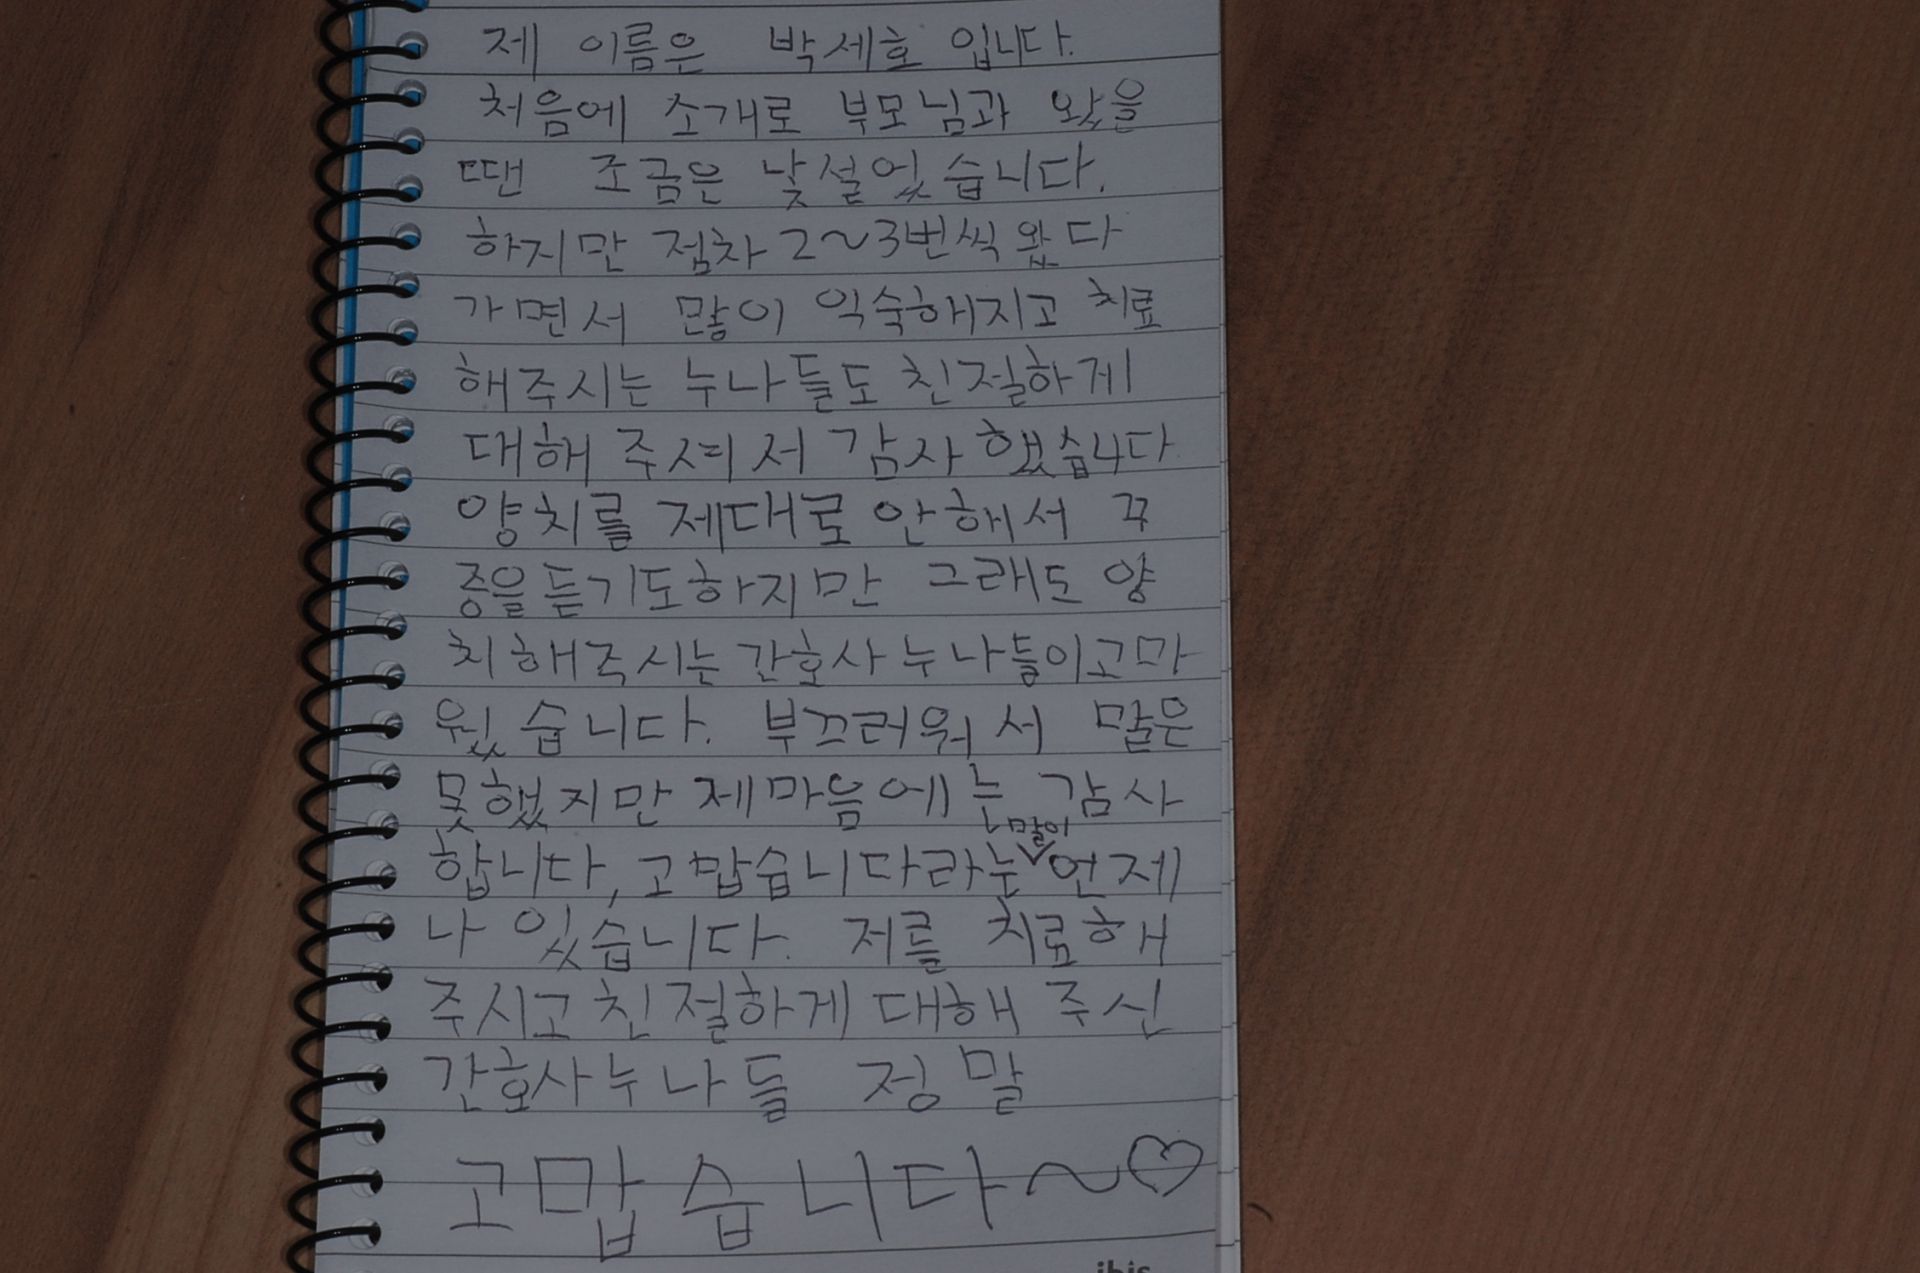 제 이름은 박세호 입니다.
처음에 소개로 부모님과 왔을
땐 조금은 낯설었습니다.
하지만 점차 2~3번씩 왔다
가면서 많이 익숙해지고 치료
해주시는 누나들도 친절하게
대해 주셔서 감사 했습니다
양치를 제대로 안해서 꾸
중을 듣기도하지만 그래도 양
치해주시는 간호사 누나들이고마
웠습니다. 부끄러워서 말은
못했지만 제마음에는 감사
합니다, 고맙습니다라는 말이 언제
나 있습니다. 저를 치료해
주시고친절하게 대해 주신
간호사누나들 정말
고맙습니다~♡
ibis